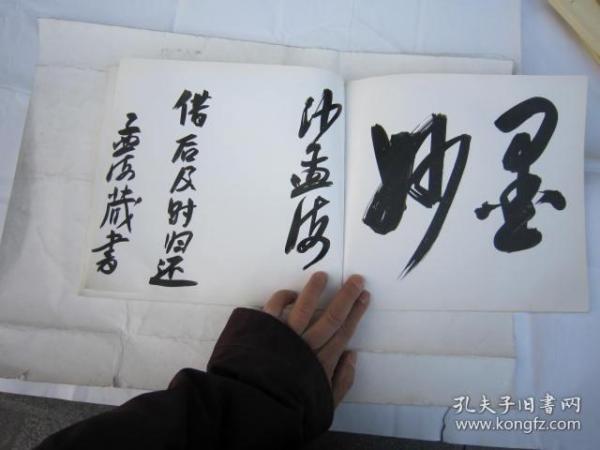 墨妙
沙孟海
借后及时归还
孟海藏书
孔夫子旧书网
www.kongfz.com